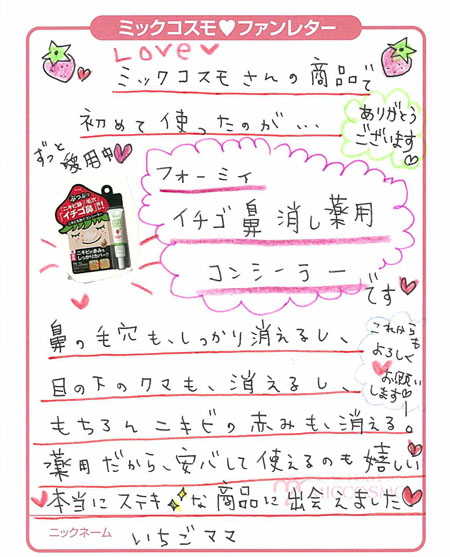 ミックコスモ♥ファンレター
Love♥
ミックコスモさんの商品で
初めて使ったのが…
ありがとう
ございます♡
ずっと愛用中♥
フォーミィ
イチゴ鼻消し薬用
コンシーラー
です♥
ぷつぷつ
イチゴ鼻に!
ニキビの赤みも
しっかりカバー!!
鼻の毛穴も、しっかり消えるし、
これからも
よろしく
お願い
します♡
目の下のクマも、消えるし、
もちろんニキビの赤みも、消える。
薬用だから、安心して使えるのも嬉しい
本当にステキな商品に出会えました♡
ニックネーム
いちごママ